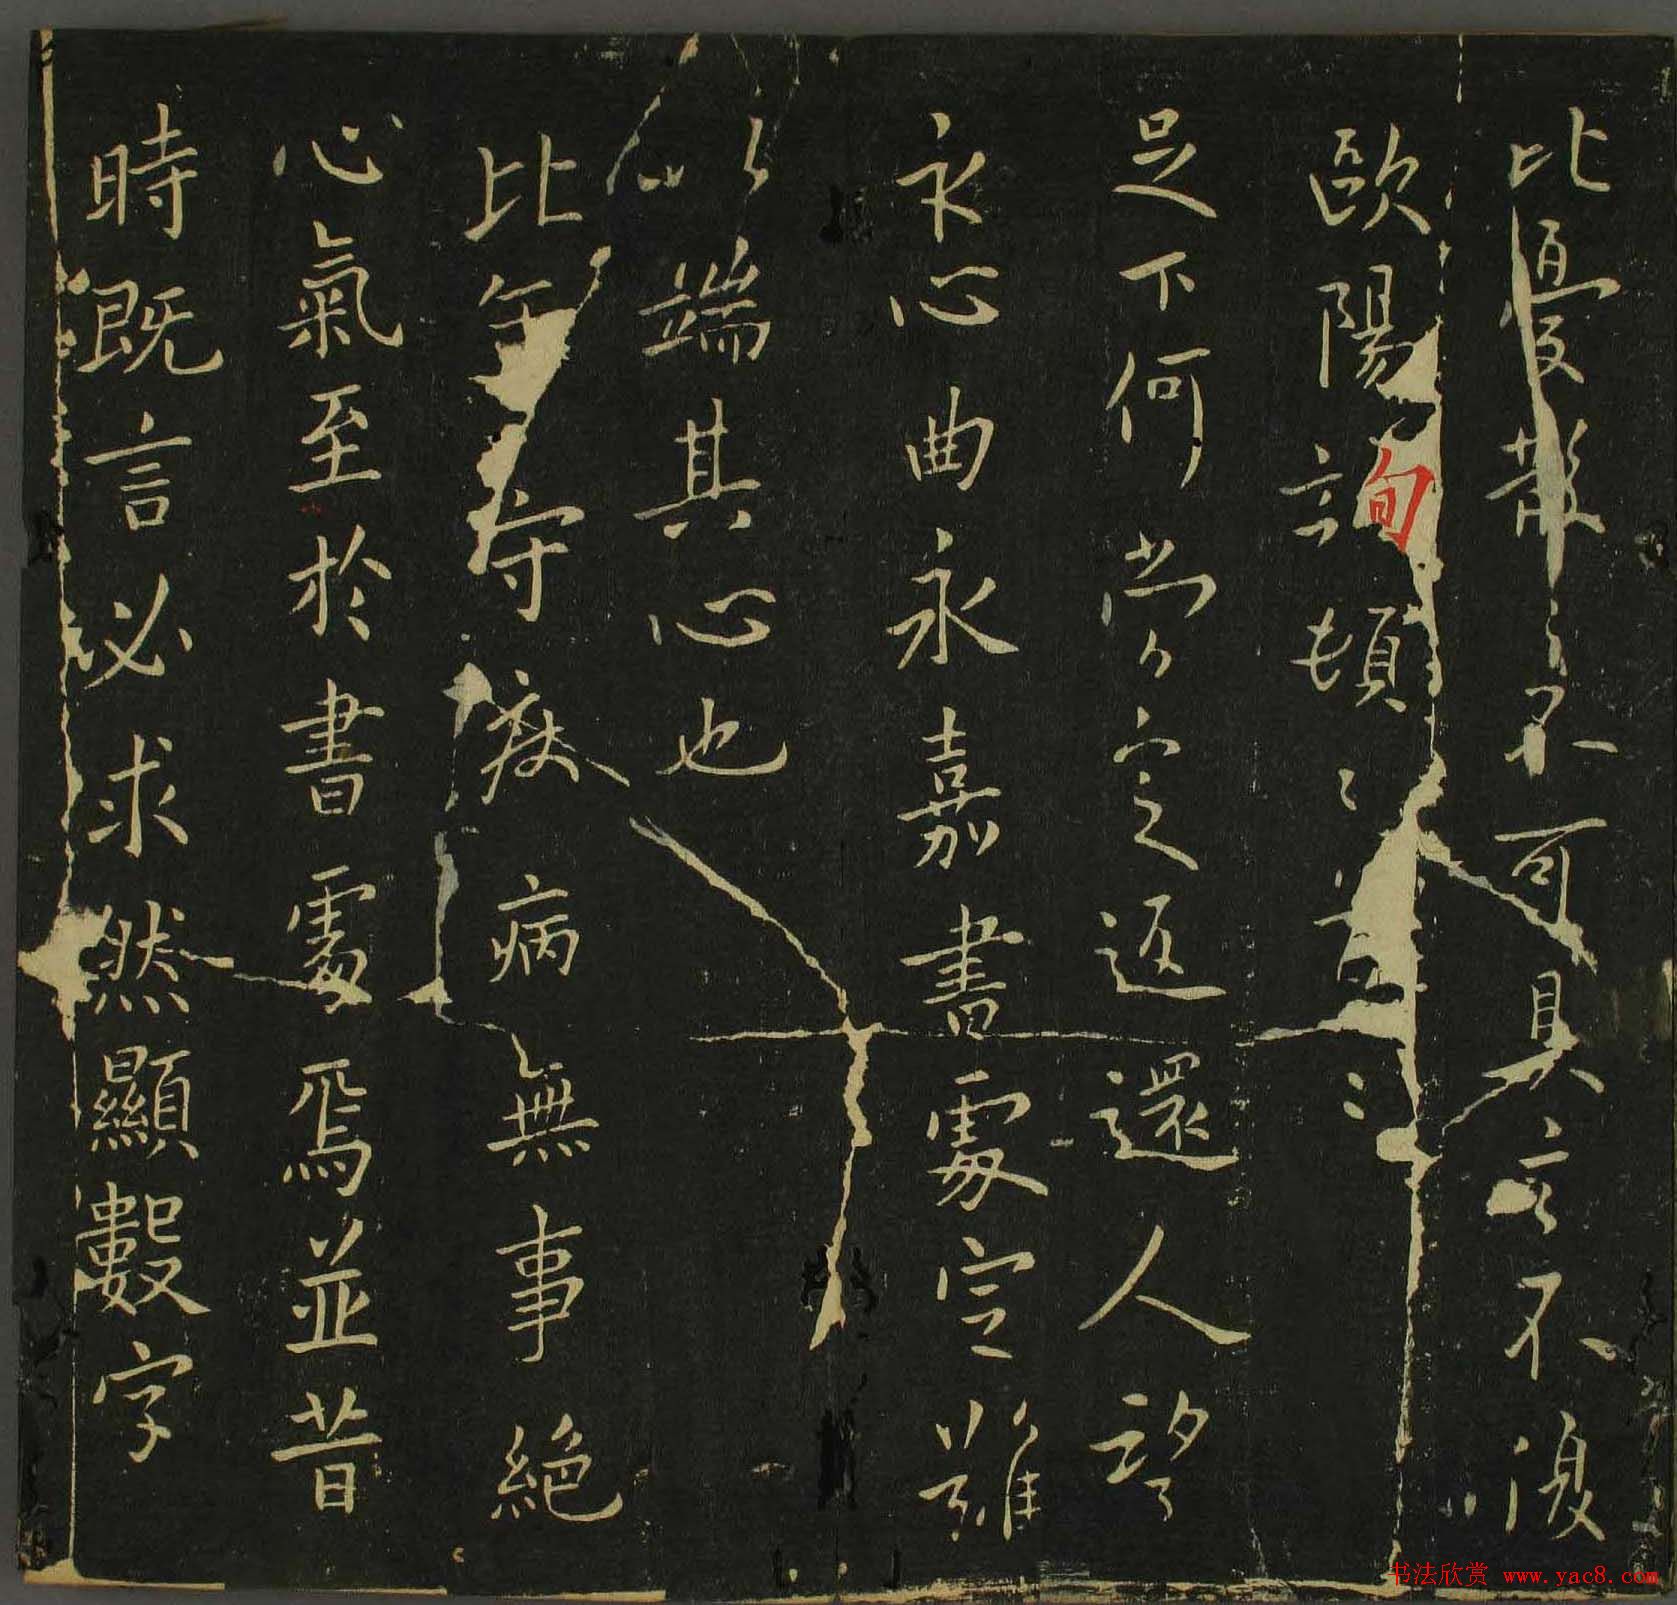 比憂散之不可具言不復
歐陽詢頓〻首〻
足下何當定返還人望
永心曲永嘉書處定難
以端其心也
比年守疾病無事絕
心氣至於書處焉並昔
時既言必求然顯數字
书法欣赏 www.yac8.com